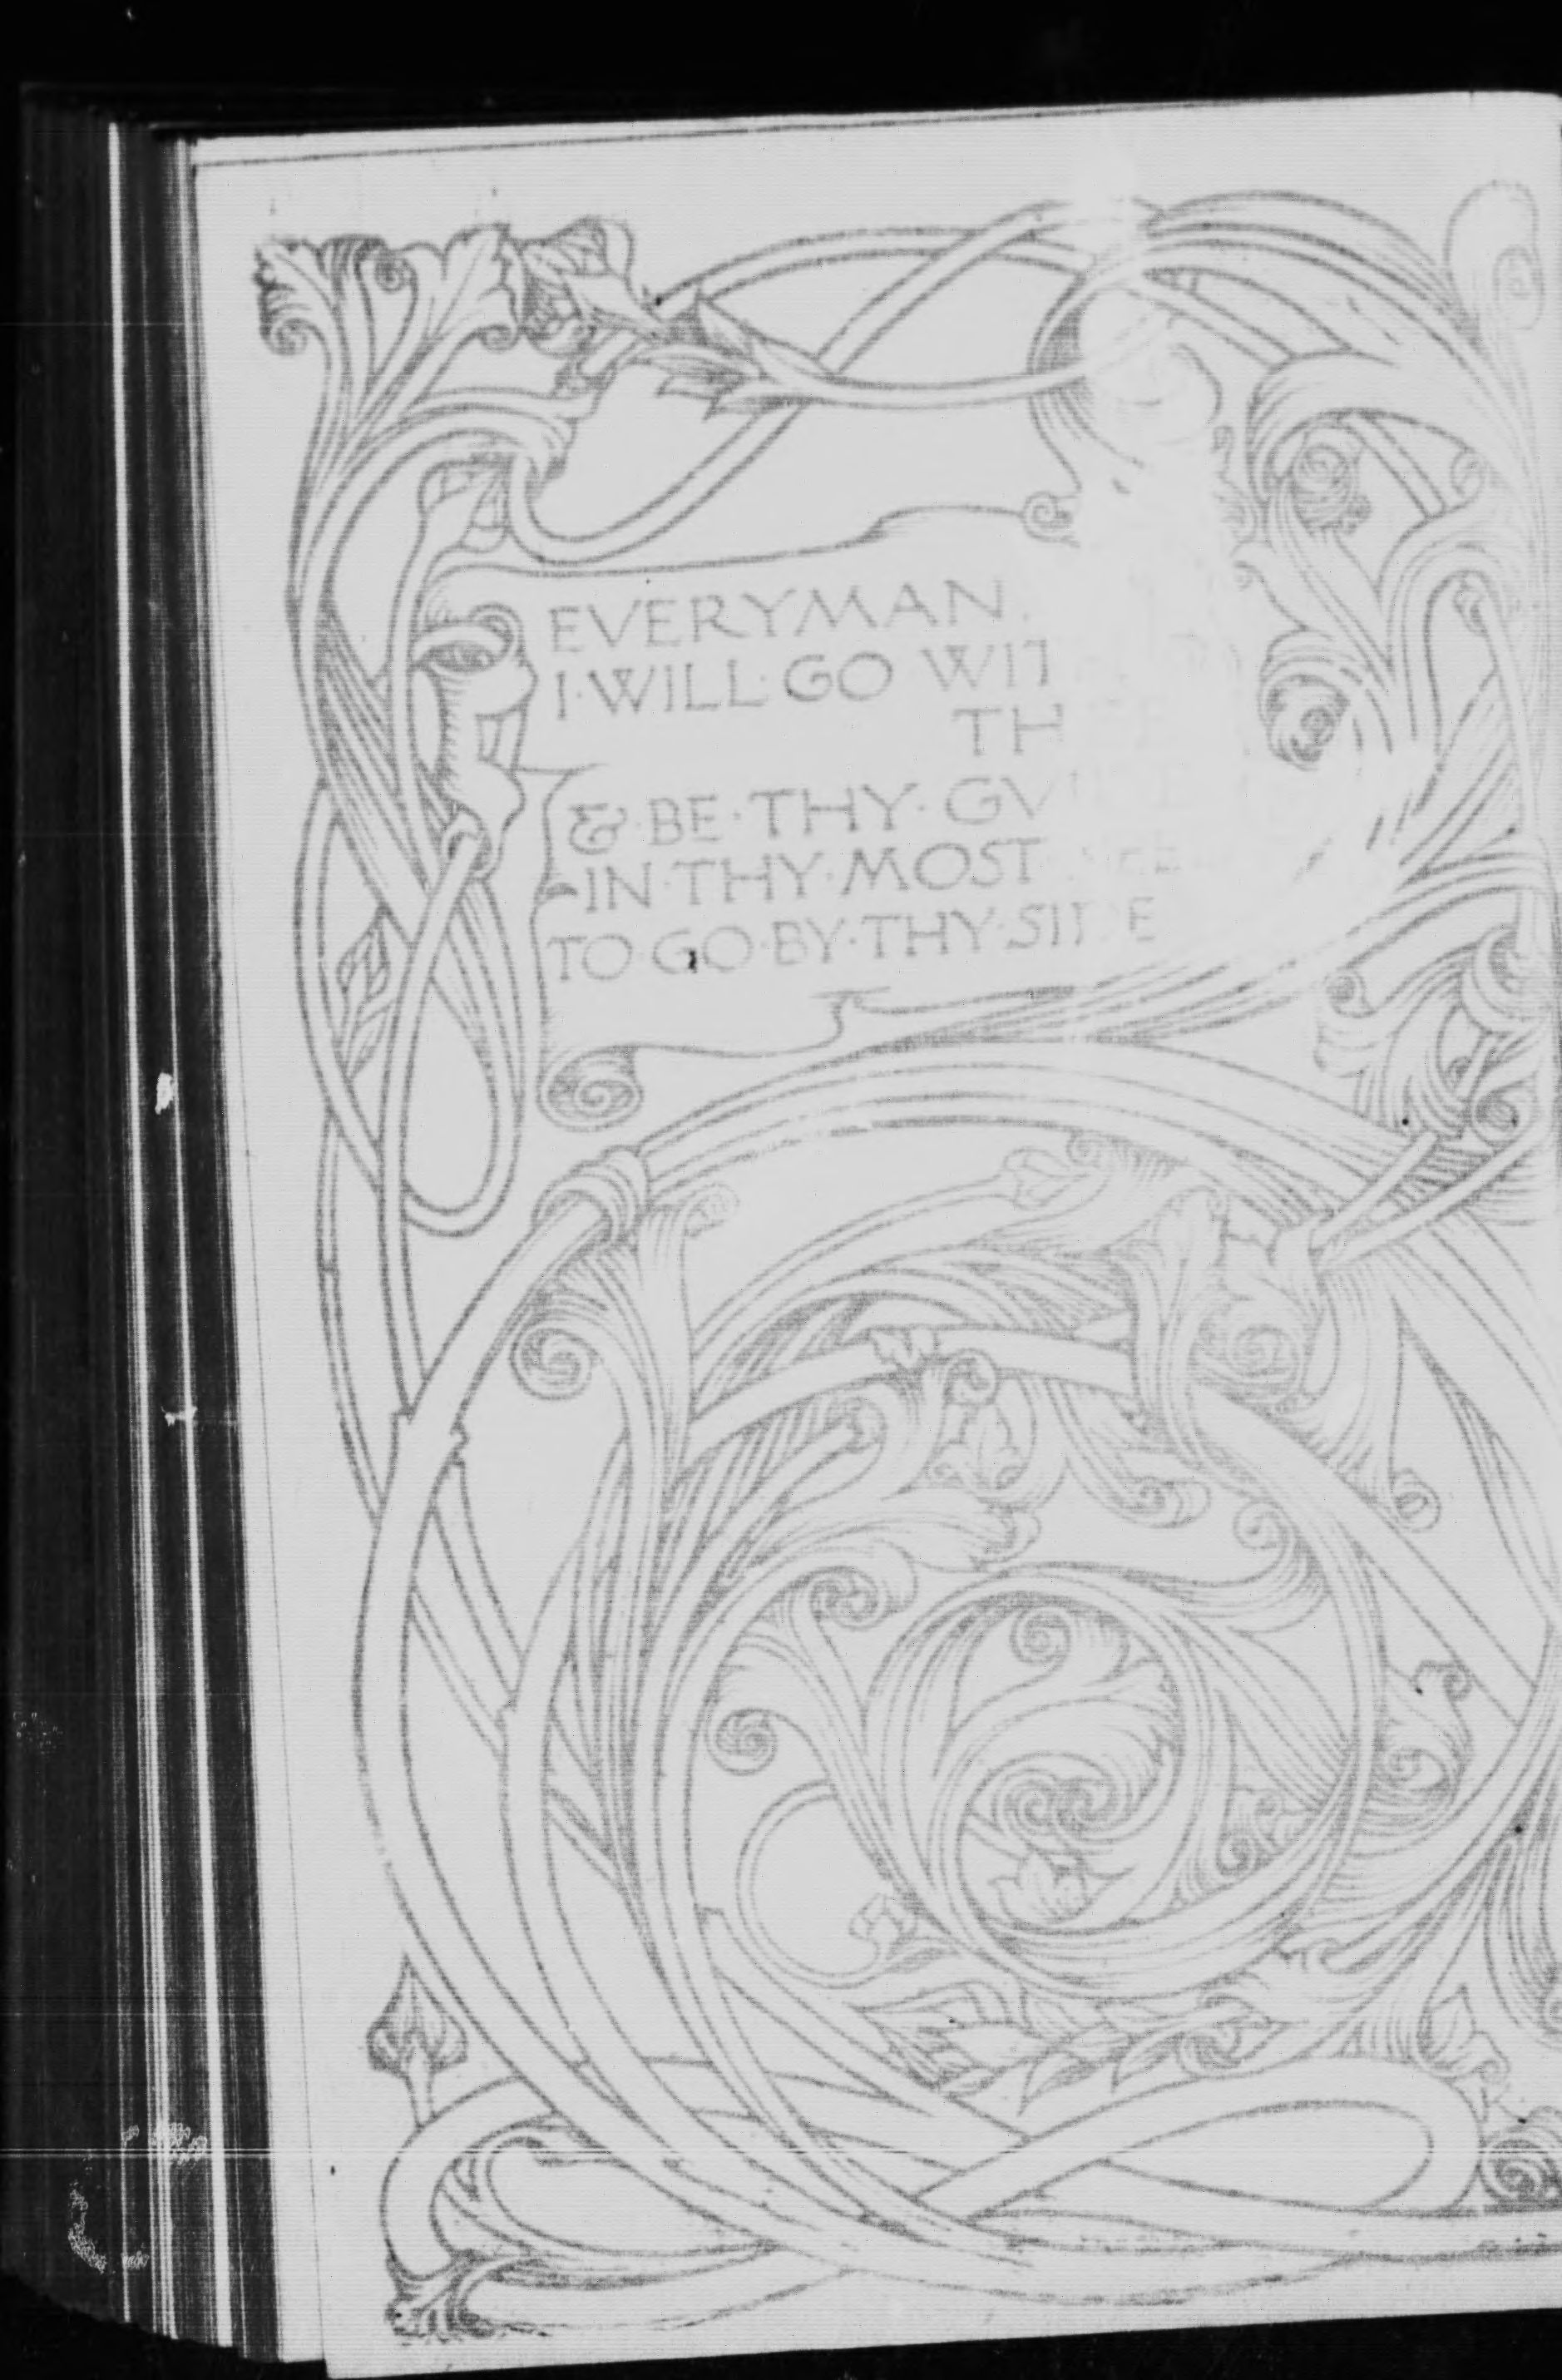 EVERYMAN.
I·WILL·GO WITH
THEE
& BE·THY·GVIDE
IN·THY·MOST NEED
TO·GO·BY·THY·SIDE